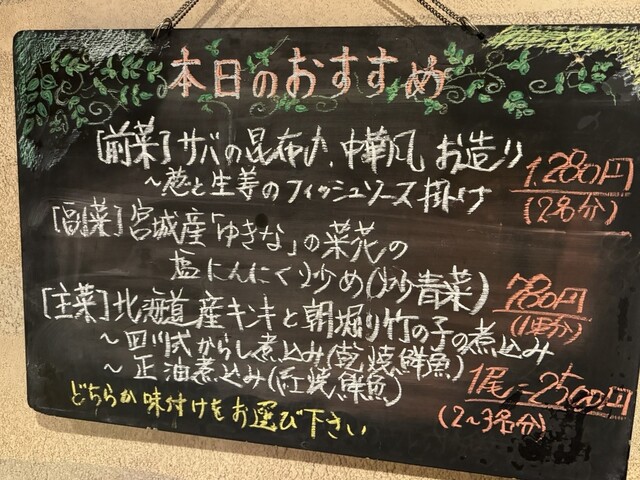 本日のおすすめ
[前菜]サバの昆布〆、中華風お造り
～葱と生姜のフィッシュソース掛け
1,280円
(2名分)
[副菜]宮城産「ゆきな」の菜花の
塩にんにく炒め(炒青菜)
780円
[主菜]北海道産キンキと朝堀り竹の子の煮込み
～四川式からし煮込み(乾焼鮮魚)
～正油煮込み(紅焼鮮魚)
1尾-2500円
(2～3名分)
どちらか味付けをお選び下さい